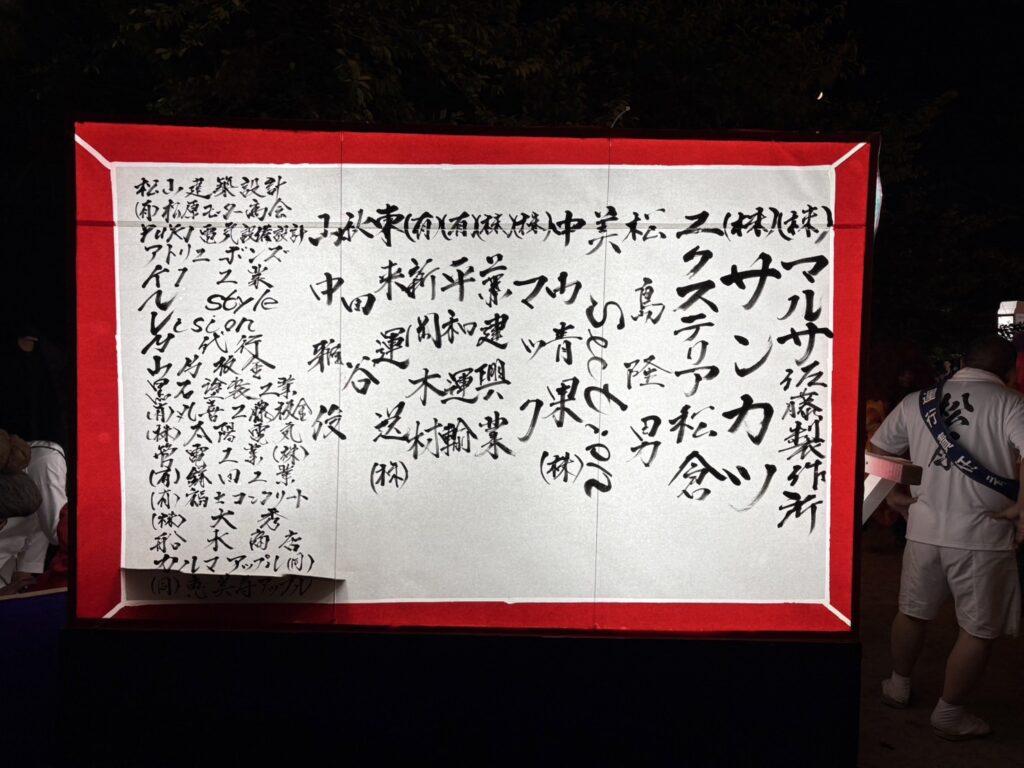 (株)マルサ佐藤製作所
(株)サンカツ
エクステリア松倉
松島隆男
美Section
中山青果(株)
(株)マック
(株)建興業
(有)平和運輸
(有)新岡木材
東来運送(株)
秋田谷
山中雅俊
松山建築設計
(有)松原モーター商会
YUKI電気設備設計
アトリエボンズ
工業
style
代行
山竹板金
黒石塗装工業
(有)丸吉工藤板金
(株)太陽電気
工業(株)
(有)鎌田工業
(有)福士コンクリート
(株)大秀
船水商店
カルマアップル(同)
(同)恵美子アップル
運行責任者